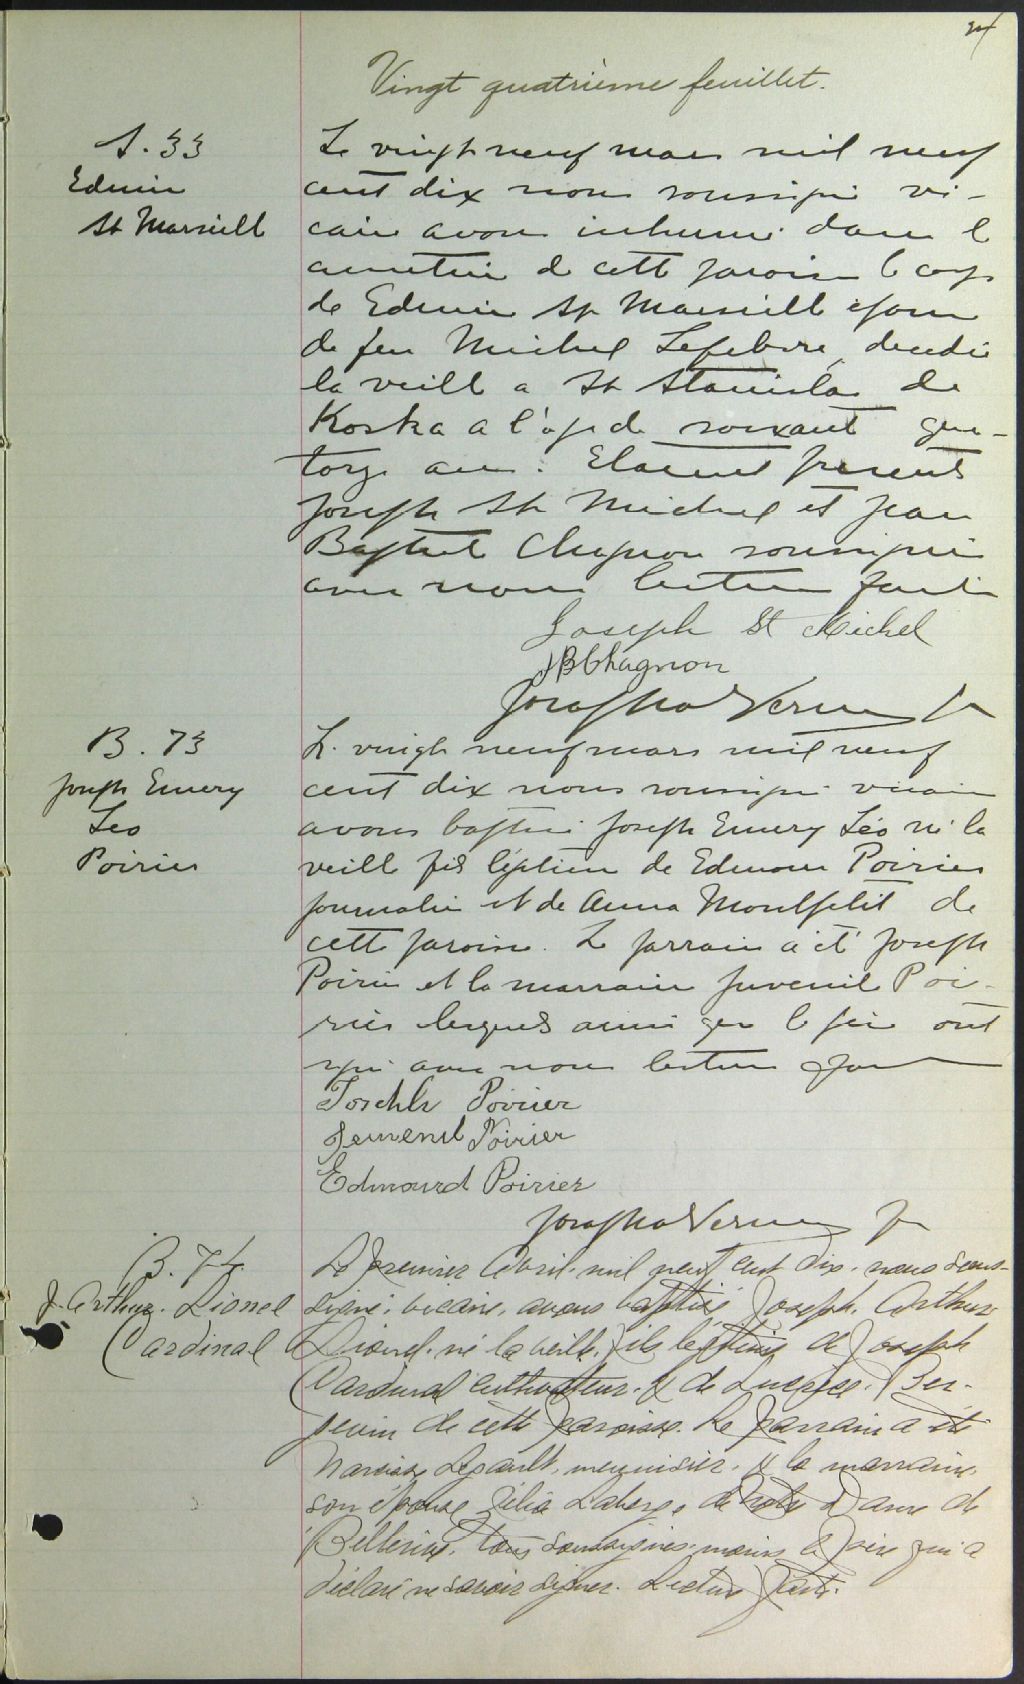 24
Vingt quatrième feuillet.
S. 33
Edwin
St Marseill
Le vingt neuf mars mil neuf
cent dix nous soussigné vi-
caire avons inhumé dans le
cimetière de cette paroisse le corps
de Edwin St Marseille époux
de feu Michel Lefebvre décédé
la veille a St Stanislas de
Kostka a l'age de soixante qua-
torze ans. Etaient présents
Joseph St Michel et Jean
Baptiste Chagnon soussignés
avec nous lecture faite
Joseph St Michel
JB Chagnon
B. 73
Joseph Emery
Leo
Poirier
Le vingt neuf mars mil neuf
cent dix nous soussigné vicaire
avons baptisé Joseph Emery Léo né la
veille fils légitime de Edmour Poirier
journalier et de Anna Montpetit de
cette paroisse. Le parrain a été Joseph
Poirier et la marraine Juvenil Poi-
rier lesquels ainsi que le père ont
signé avec nous lecture faite
Joseph Poirier
Jeuvenil Poirier
Edmourd Poirier
B. 74
J. Arthur. Lionel
Cardinal
Le premier Avril. mil neuf cent dix. nous sous-
signé. vicaire. avons baptisé Joseph. Arthur
Lionel. né la veille. fils légitime de Joseph
Cardinal cultivateur. & de Lucrèce. Ber-
gevin de cette paroisse. Le parrain a été
Narcisse Legault, menuisier. & la marraine
son épouse Zélia Laberge, de Notre Dame de
Bellerive. tous soussignés moins le père qui a
déclaré ne savoir signer. Lecture faite.